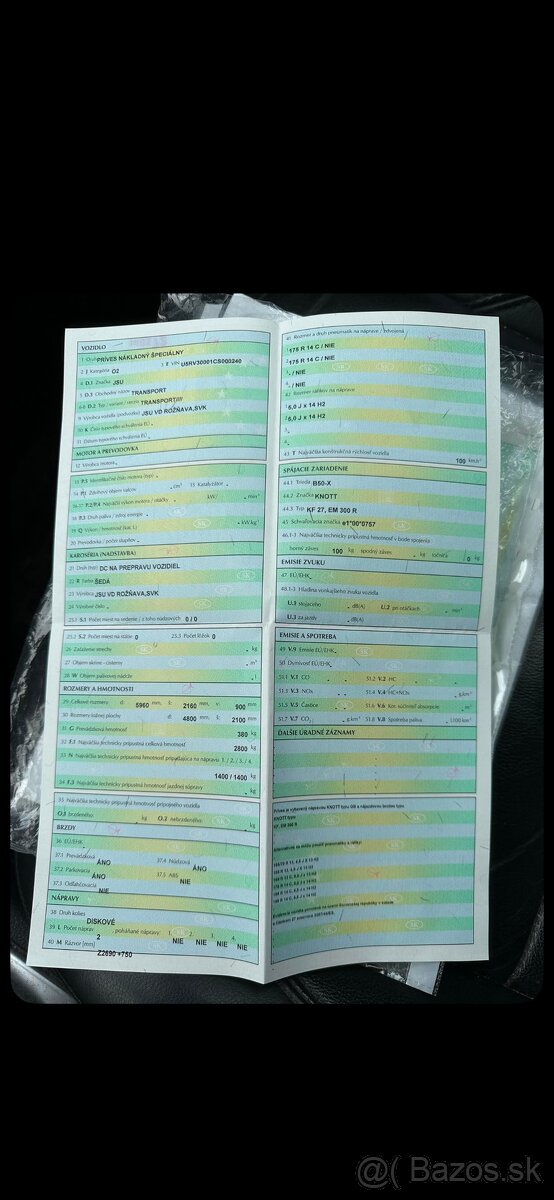 VOZIDLO
1 Druh PRÍVES NÁKLADNÝ ŠPECIÁLNY
2 J Kategória O2 3 E VIN U5RV30001CS000240
4 D.1 Značka JSU
5 D.3 Obchodný názov TRANSPORT
6-8 D.2 Typ / variant / verzia TRANSPORT////
9 Výrobca vozidla (podvozku) JSU VD ROŽŇAVA,SVK
10 K Číslo typového schválenia EÚ
11 Dátum typového schválenia EÚ
MOTOR A PREVODOVKA
12 Výrobca motora
13 P.5 Identifikačné číslo motora (typ)
14 P.1 Zdvihový objem valcov cm³ 15 Katalyzátor
16-17 P.2/P.4 Najväčší výkon motora / otáčky kW/ min⁻¹
18 P.3 Druh paliva / zdroj energie
19 Q Výkon / hmotnosť (kat. L) kW.kg⁻¹
20 Prevodovka / počet stupňov
KAROSÉRIA (NADSTAVBA)
21 Druh (typ) DC NA PREPRAVU VOZIDIEL
22 R Farba ŠEDÁ
23 Výrobca JSU VD ROŽŇAVA,SVK
24 Výrobné číslo
25 S.1 Počet miest na sedenie / z toho núdzových 0 / 0
25.2 S.2 Počet miest na státie 0 25.3 Počet lôžok 0
26 Zaťaženie strechy kg
27 Objem skrine - cisterny m³
28 W Objem palivovej nádrže
ROZMERY A HMOTNOSTI
29 Celkové rozmery d: 5960 mm, š: 2160 mm, v: 900 mm
30 Rozmery ložnej plochy d: 4800 mm, š: 2100 mm
31 G Prevádzková hmotnosť 380 kg
32 F.1 Najväčšia technicky prípustná celková hmotnosť 2800 kg
33 N Najväčšia technicky prípustná hmotnosť pripadajúca na nápravu 1. / 2. / 3. / 4.
1400 / 1400 kg
34 F.3 Najväčšia technicky prípustná hmotnosť jazdnej súpravy kg
35 Najväčšia technicky prípustná hmotnosť prípojného vozidla
O.1 brzdeného: kg O.2 nebrzdeného: kg
BRZDY
36 EÚ/EHK
37.1 Prevádzková ÁNO 37.4 Núdzová
37.2 Parkovacia ÁNO 37.5 ABS NIE
37.3 Odľahčovacia NIE
NÁPRAVY
38 Druh kolies DISKOVÉ
39 L Počet náprav 2, poháňané nápravy: 1. NIE 2. NIE 3. NIE 4. NIE
40 M Rázvor [mm] Z2690 +750
41 Rozmer a druh pneumatík na náprave / zdvojená
1. 175 R 14 C / NIE
2. 175 R 14 C / NIE
3. / NIE
4. / NIE
42 Rozmer ráfikov na náprave
1. 5,0 J x 14 H2
2. 5,0 J x 14 H2
3.
4.
43 T Najväčšia konštrukčná rýchlosť vozidla 100 km.h⁻¹
SPÁJACIE ZARIADENIE
44.1 Trieda B50-X
44.2 Značka KNOTT
44.3 Typ KF 27, EM 300 R
45 Schvaľovacia značka e1*00*0757
46.1-3 Najväčšie technicky prípustné hmotnosti v bode spojenia
horný záves 100 kg spodný záves kg točnica 0 kg
EMISIE ZVUKU
47 EÚ/EHK
48.1-3 Hladina vonkajšieho zvuku vozidla
U.1 stojaceho dB(A) U.2 pri otáčkach min⁻¹
U.3 za jazdy dB(A)
EMISIE A SPOTREBA
49 V.9 Emisie EÚ/EHK
50 Dymivosť EÚ/EHK
51.1 V.1 CO 51.2 V.2 HC
51.3 V.3 NOx 51.4 V.4 HC+NOx g.km⁻¹
51.5 V.5 Častice 51.6 V.6 Kor. súčiniteľ absorpcie m⁻¹
51.7 V.7 CO₂ g.km⁻¹ 51.8 V.8 Spotreba paliva l.100 km⁻¹
ĎALŠIE ÚRADNÉ ZÁZNAMY
Príves je vybavený nápravou KNOTT typu GB a nájazdovou brzdou typu
KNOTT
KF, EM 300 R
@( Bazos.sk